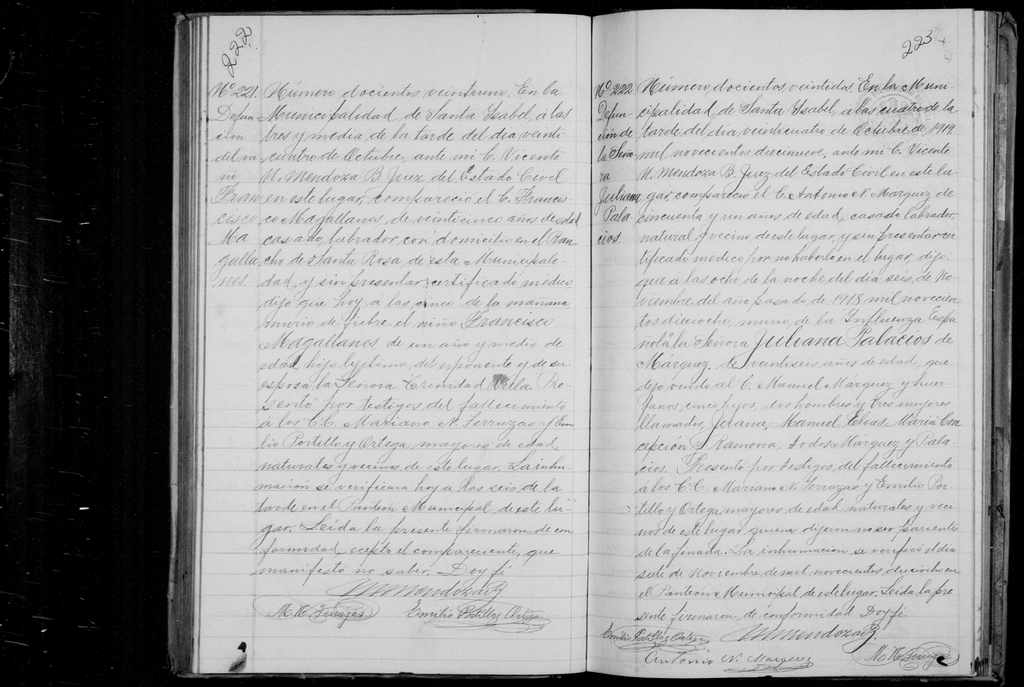 222
No 221.
Defun
ción
del ni
ño
Fran
cisco
Ma
galla
nes.
Número docientos veintiuno. En la
Municipalidad de Santa Isabel, á las
tres y media de la tarde del día vein-
cuatro de Octubre, ante mí C. Vicente
M. Mendoza B. Juez del Estado Civil
en este lugar, compareció el C. Francis
co Magallanes, de veinticinco años de edad
casado, labrador, con domicilio en el Ran
cho de Santa Rosa de esta Municipali-
dad, y sin presentar certificado médico
dijo: que hoy a las cinco de la mañana
murió de fiebre el niño Francisco
Magallanes de un año y medio de
edad, hijo legítimo del exponente y de su
esposa la Señora Trinidad Pre
sentó por testigos del fallecimiento
á los C.C. Mariano N. Terrazas y Emi
lio Portillo y Ortega, mayores de edad
naturales y vecinos de este lugar. La inhu-
mación se verificará hoy a las seis de la
tarde en el Panteón Municipal de este lu
gar. Leída la presente firmaron de con
formidad, exepto el compareciente, que
manifestó no saber. Doy fé
VM Mendoza B.
M. N. Terrazas
Emilio Portillo y Ortega
223
No 222
Defun-
ción de
la Seño
ra
Juliana
Pala
cios.
Número docientos veintidos. En la Muni
cipalidad de Santa Ysabel, a las cuatro de la
tarde del día veinticuatro de Octubre de 1919
mil novecientos diecinueve, ante mí C. Vicente
M. Mendoza B. Juez del Estado Civil en este lu
gar, compareció el C. Antonio N. Márquez de
cincuenta y un años de edad, casado labrador,
natural y vecino de este lugar, y sin presentar cer
tificado médico por no haberlo en el lugar, dijo:
que a las ocho de la noche del día seis de No
viembre del año pasado de 1918 mil novecien
tos dieciocho, murió de la Influenza Espa
ñola la Señora Juliana Palacios de
Márquez, de veintiseis años de edad, que
dejó viudo al C. Manuel Márquez y huer
fanos, cinco hijos, dos hombres y tres mujeres
llamados, Manuel Elías, María Con
cepción y Ramona, todos Márquez y Pala-
cios. Presentó por testigos del fallecimiento
á los C.C. Mariano N. Terrazas y Emilio Por-
tillo y Ortega, mayores de edad, naturales y veci
nos de este lugar, quienes dijeron no ser parientes
de la finada. La inhumación se verificó el día
siete de Noviembre de mil novecientos dieciocho en
el Panteón Municipal de este lugar. Leída la pre
sente firmaron de conformidad. Doy fé
Emilio Portillo y Ortega
VM Mendoza B.
Antonio N. Marquez
M. N. Terrazas